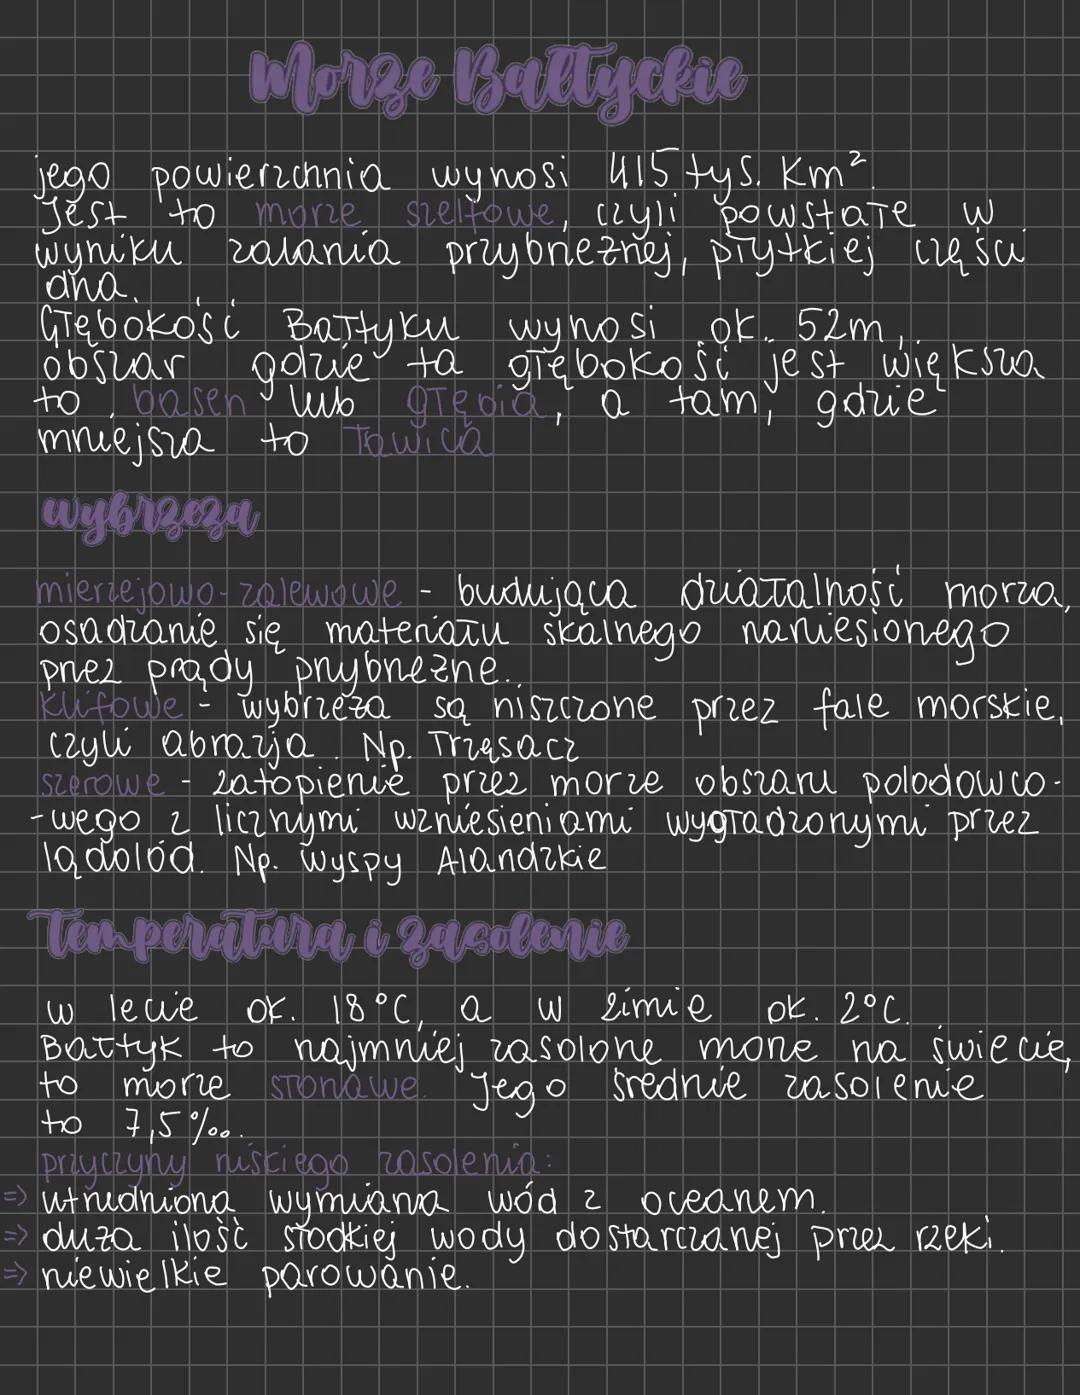 Morze Bałtyckie
jego powierzchnia wynosi 415 tys. km².
Jest to morze szelfowe, czyli powstałe w
wyniku zalania przybrzeżnej, płytkiej części
dna.
Głębokość Bałtyku wynosi ok. 52m,
obszar gdzie ta głębokość jest większa
to basen lub głębia, a tam, gdzie
mniejsza to ławica
wybrzeża
mierzejowo-zalewowe - budująca działalność morza,
osadzanie się materiału skalnego naniesionego
przez prądy przybrzeżne.
klifowe - wybrzeża są niszczone przez fale morskie,
czyli abrazja. Np. Trzęsacz
szerowe - zatopienie przez morze obszaru polodowco-
-wego z licznymi wzniesieniami wygładzonymi przez
lądolód. Np. Wyspy Alandzkie
Temperatura i zasolenie
w lecie ok. 18°C, a w zimie ok. 2°C.
Bałtyk to najmniej zasolone morze na świecie,
to morze słonawe. Jego średnie zasolenie
to 7,5‰.
przyczyny niskiego zasolenia:
=> utrudniona wymiana wód z oceanem.
=> duża ilość słodkiej wody dostarczanej przez rzeki.
=> niewielkie parowanie.